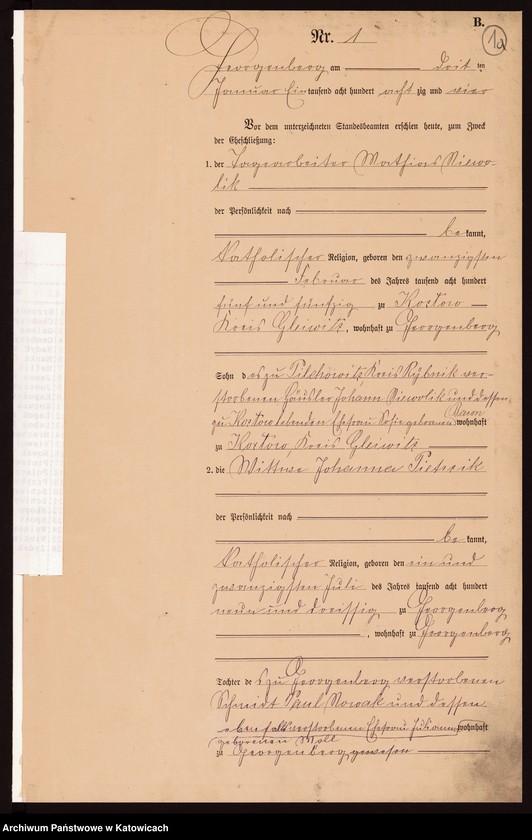 B.
1a
Nr. 1
Georgenberg am drit ten
Januar Eintausend acht hundert acht zig und vier
Vor dem unterzeichneten Standesbeamten erschien heute, zum Zweck
der Eheschließung:
1. der Tagearbeiter Mathias Niewo-
lik
der Persönlichkeit nach
be kannt,
Katholischer Religion, geboren den zwanzigsten
Februar des Jahres tausend acht hundert
fünf und fünfzig zu Kostow
Kreis Gleiwitz, wohnhaft zu Georgenberg
Sohn des zu Pilchowitz Kreis Rybnik ver-
storbenen Häusler Johann Niewolik und dessen
zu Kostow lebenden Ehefrau Sofie geborenen
wohnhaft
zu Kostow, Kreis Gleiwitz
2. die Wittwe Johanna Pietrzik
der Persönlichkeit nach
be kannt,
Katholischer Religion, geboren den ein und
zwanzigsten Juli des Jahres tausend acht hundert
neun und dreissig zu Georgenberg
, wohnhaft zu Georgenberg
Tochter des zu Georgenberg verstorbenen
Schmidt Paul Nowak und dessen
ebenfalls verstorbenen Ehefrau Julianna wohnhaft
geborenen Moll
zu Georgenberg gewesen
Archiwum Państwowe w Katowicach